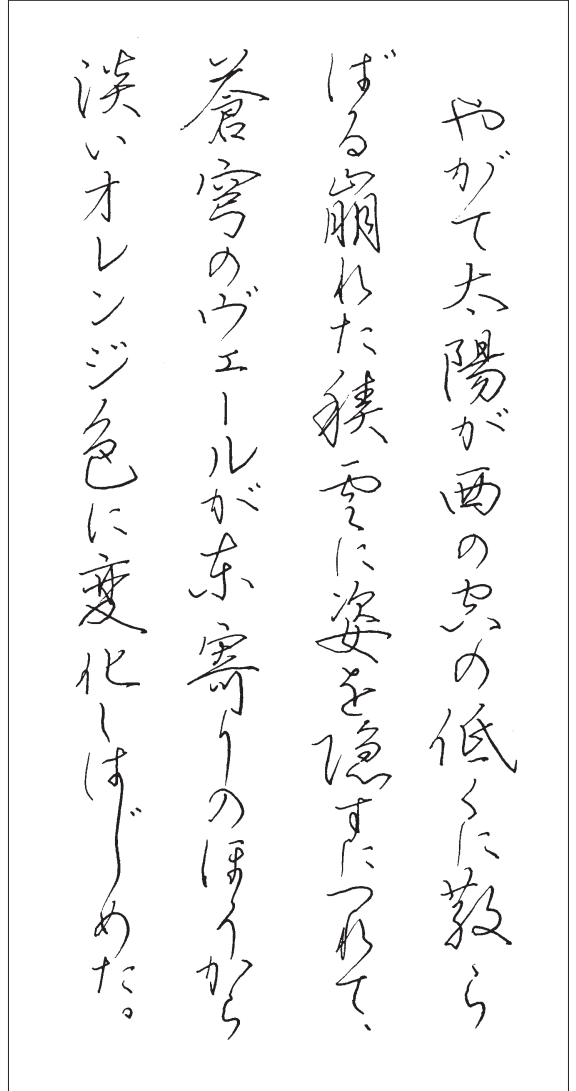 やがて太陽が西の空の低くに散ら
ばる崩れた積雲に姿を隠すにつれて、
蒼穹のヴェールが東寄りのほうから
淡いオレンジ色に変化しはじめた。